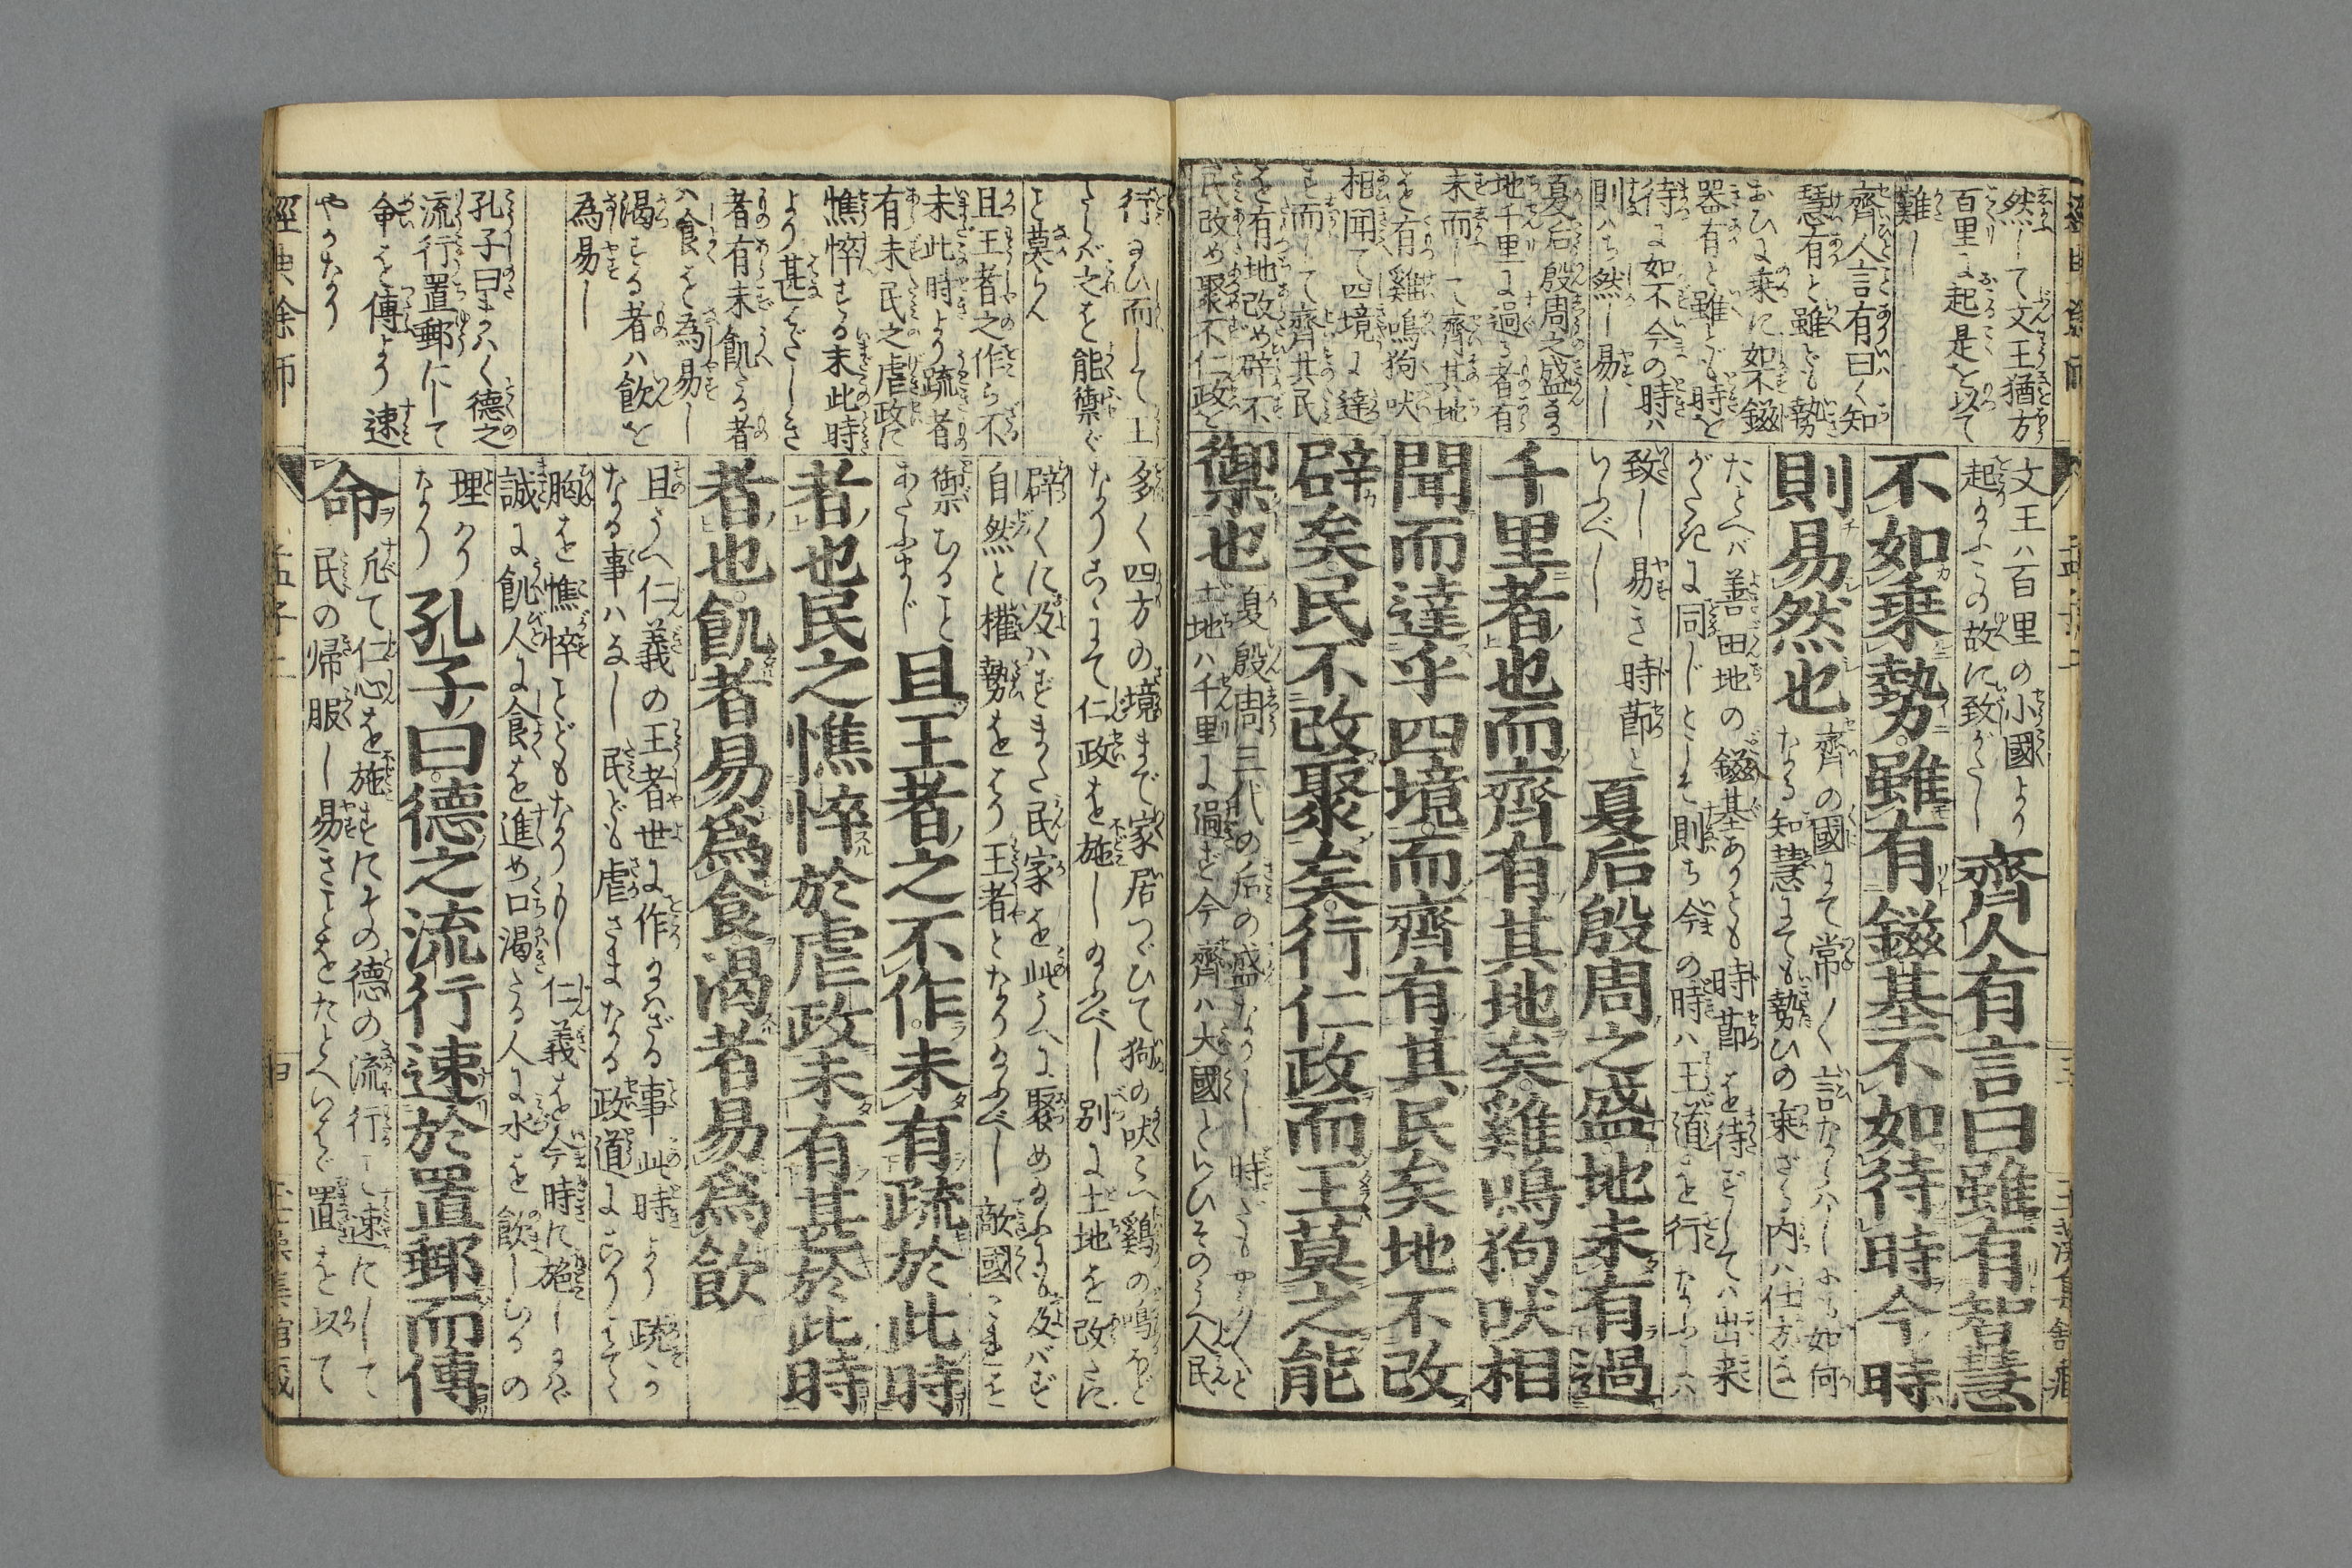 然して文王猶方
百里に起是を以て
難し
齊人言有曰く知
慧有と雖ども勢
おひに乗に如不鎡
器有と雖ども時を
待に如不今の時ハ
則ハち然し易し
夏后殷周之盛なる
地千里に過る者有
未而して齊其地
を有雞鳴狗吠
相聞て四境に達
す而して齊其民
を有地改め辟不
民改め聚不仁政を
文王ハ百里の小國より
起たまふの故に致がたし
齊人有言曰雖有智慧
不如乗勢雖有鎡基不如待時今時
則易然也
齊の國にて常々言ならハしにも如何
なる知慧にても勢ひの乗ざる内ハ仕方なし
たとへバ善田地の鎡基ありとも時節を待ずしてハ出来
がたきに同じとこそ則ち今の時ハ王道を行なふにハ
致し易き時節と
いふべし
夏后殷周之盛地未有過
千里者也而齊有其地矣雞鳴狗吠相
聞而達乎四境而齊有其民矣地不改
辟矣民不改聚矣行仁政而王莫之能
禦也
夏殷周三代の后の盛なりし時だも中々
土地ハ千里に過ず今齊ハ大國といひそのうへ人民
行ひ而して王
たらバ之を能禦ぐ
こと莫らん
且王者之作ら不
未此時より疏者
有未民之虐政に
憔悴する未此時
より甚はだしき
者有未飢たる者
ハ食を為易し
渇する者ハ飲を
為易し
孔子曰まハく德之
流行置郵にして
命を傳より速
やかなり
多く四方の境まで家居つゞひて狗の吠こへ鷄の鳴ほど
なりこゝにて仁政を施しのふべし別に土地を改ために
辟くに及ハずまた民家を此うへに聚めるにも及バず
自然と權勢をとり王者となりたふべし敵國これを
禦むること
あたふまじ
且王者之不作未有疏於此時
者也民之憔悴於虐政未有甚於此時
者也飢者易爲食渇者易爲飲
且うへ仁義の王者世に作りたハざる事此時より疏か
なる事ハなし民ども虐さまなる政道にこりはてく
胸を憔悴ことどもなり
仁義を今時に施しまさバ
誠に飢人に食を進め口渇たる人に水を飲しむるの
理けり
なり
孔子曰德之流行速於置郵而傳
命
凡て仁心を施すにその德の流行こと速にして
民の帰服し易きことをたとへいハゞ置を以て
經典余師